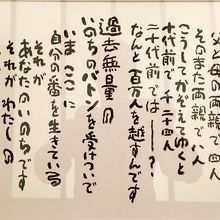 父と母の両親で四人
そのまた両親で八人
こうしてかぞえてゆくと
十代前で 千二十四人
二十代前では――?
なんと百万人を越すんです
過去無量の
いのちのバトンを受けついで
いま ここに
自分の番を生きている
それが
あなたのいのちです
それがわたしの